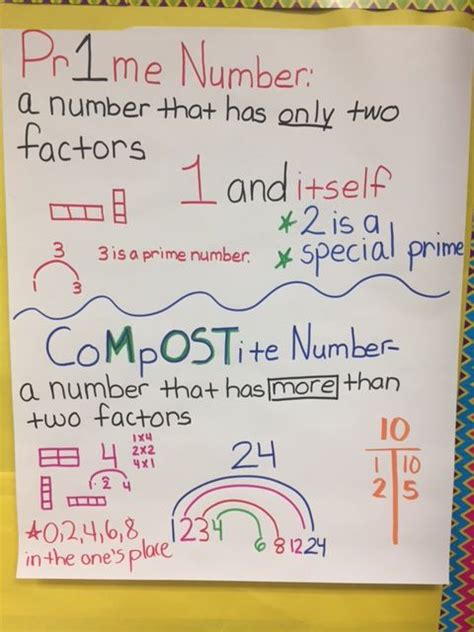 Pr1me Number:
a number that has only two
factors
1 and itself
*2 is a
*special prime
3
1 3
3 is a prime number.
CoMpOSTite Number-
a number that has more than
two factors
4
1x4
2x2
4x1
1 2 4
*0,2,4,6,8
in the one's place
24
1 2 3 4 6 8 12 24
10
1 10
2 5